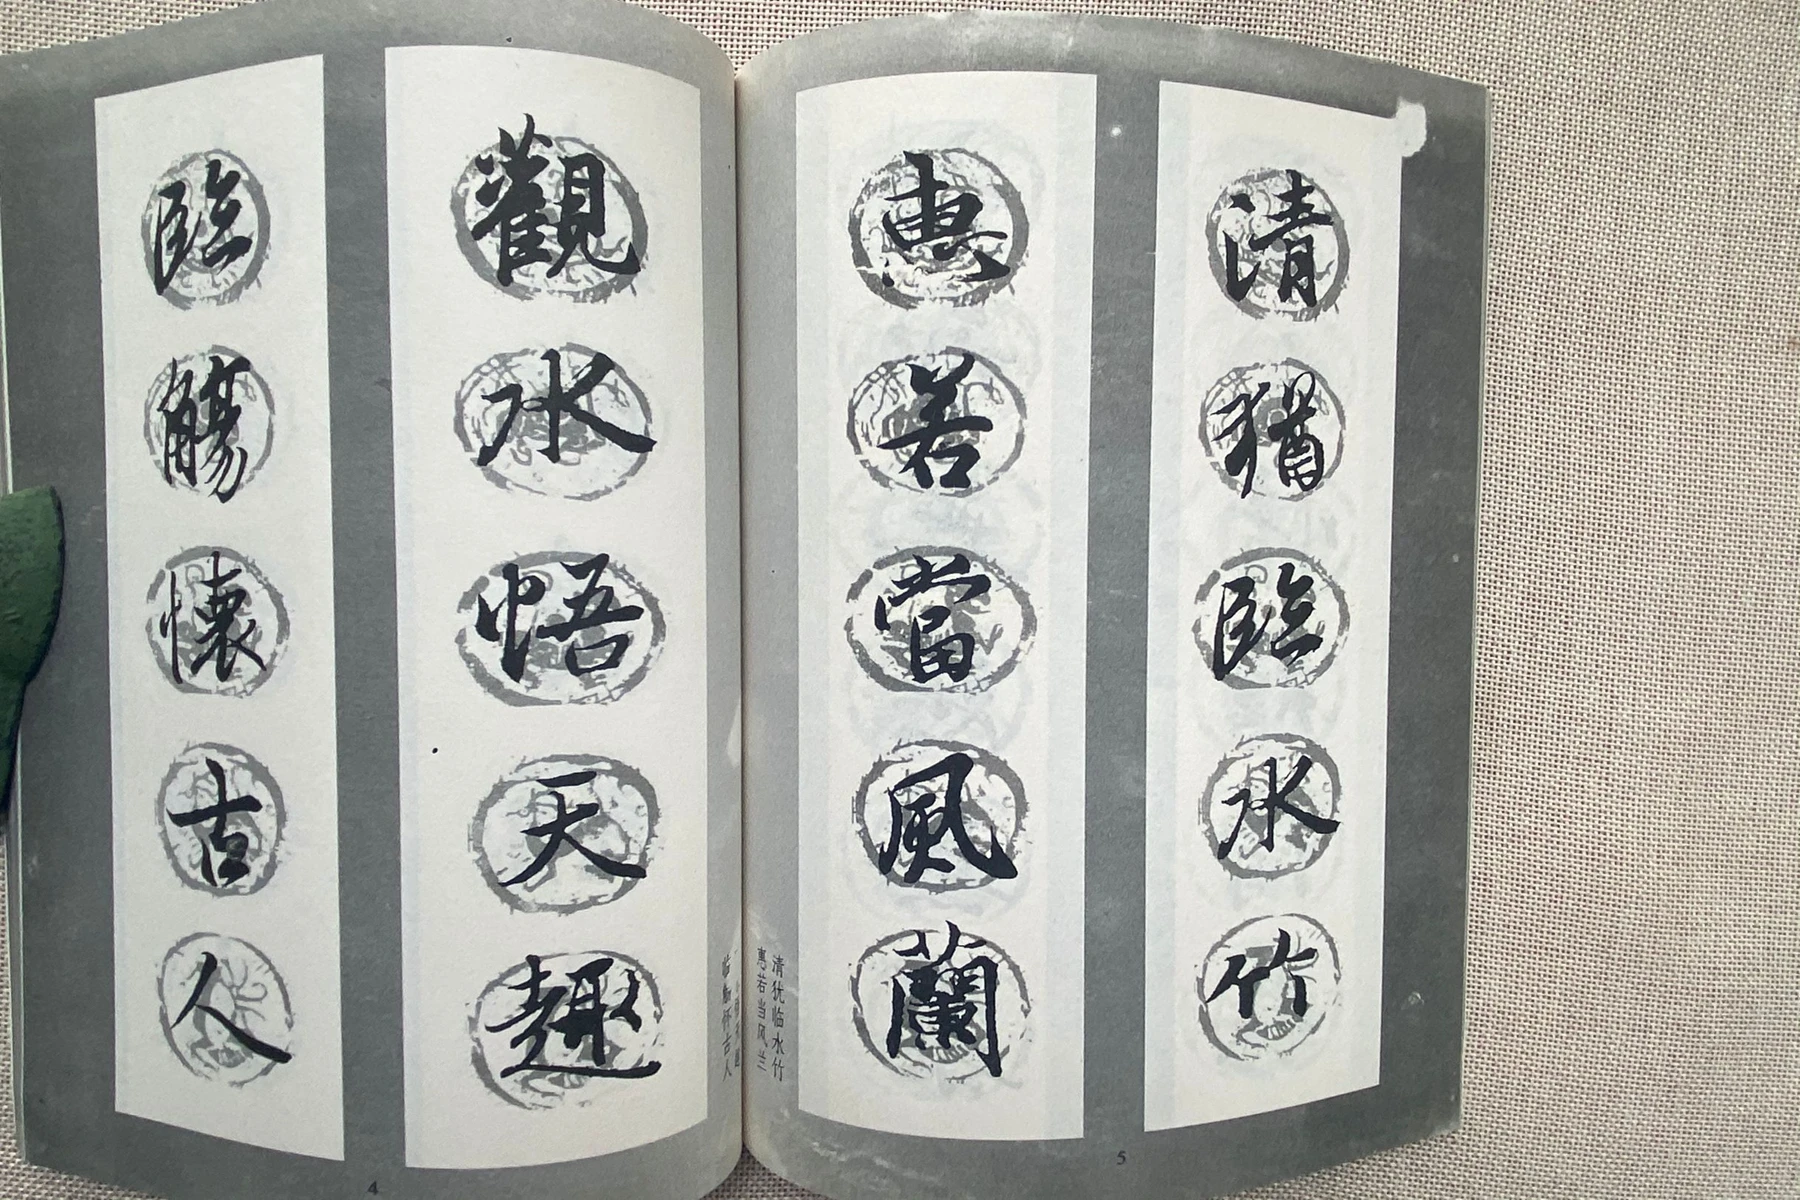 清猶臨水竹
惠若當風蘭
清犹临水竹
惠若当风兰
5
觀水悟天趣
臨觴懷古人
临觞怀古人
4